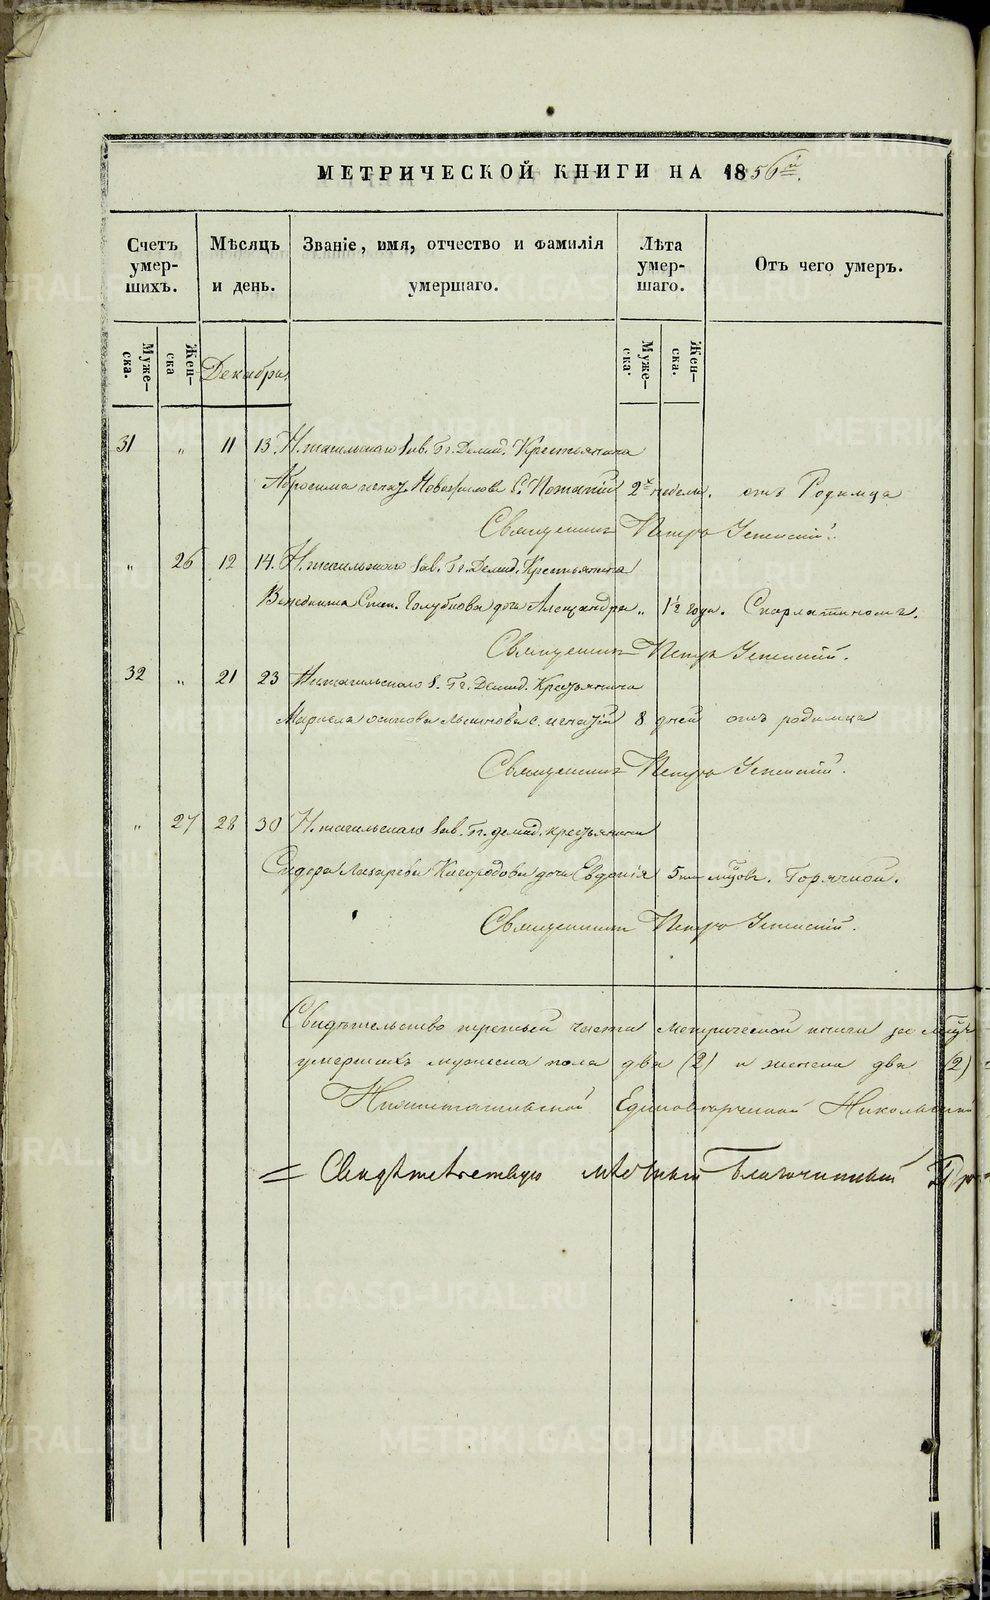 МЕТРИЧЕСКОЙ КНИГИ НА 1856й.
Счетъ умершихъ. Мѣсяцъ и день. Званіе, имя, отчество и фамилія умершаго. Лѣта умершаго. Отъ чего умеръ.
Муже-ска. Жен-ска Декабрь. Муже-ска. Жен-ска.
31 " 11 13. Н.тагильскаго зав. Гг. Демид. Крестьянина
2х недель. отъ Родимца
Священникъ Петръ Успенскій.
" 26 12 14. Н.тагильскаго зав. Гг. Демид. Крестьянина
Венедикта Степ. Голубцова дочь Александра " 1½ года. Скарлатиномъ.
Священникъ Петръ Успенскій.
32 " 21 23 Н.тагильскаго з. Гг. Демид. Крестьянина
8 дней отъ родимца
Священникъ Петръ Успенскій.
" 27 28 30 Н.тагильскаго зав. Гг. демид. крестьянина
Сидора Лазарева дочь Евдокія 5 Горячкой.
Священникъ Петръ Успенскій.
Свидѣтельство третьей части метрической книги за
умершихъ мужеска пола два (2) и женска два (2)
Нижнетагильской Единоверческой Николаевской
= Свидѣтельствую мѣстный Благочинный
METRIKI.GASO-URAL.RU